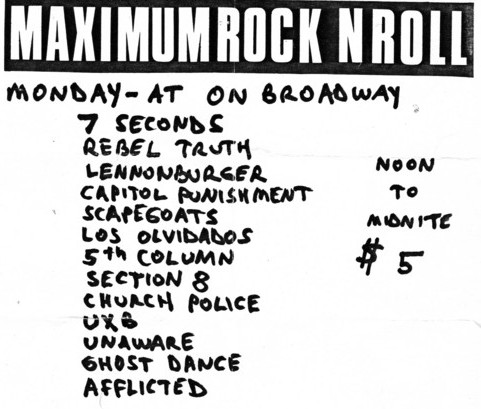 MAXIMUMROCK NROLL
MONDAY - AT ON BROADWAY
7 SECONDS
REBEL TRUTH
LENNONBURGER
CAPITOL PUNISHMENT
SCAPEGOATS
LOS OLVIDADOS
5th COLUMN
SECTION 8
CHURCH POLICE
UXB
UNAWARE
GHOST DANCE
AFFLICTED
NOON
TO
MIDNITE
$ 5